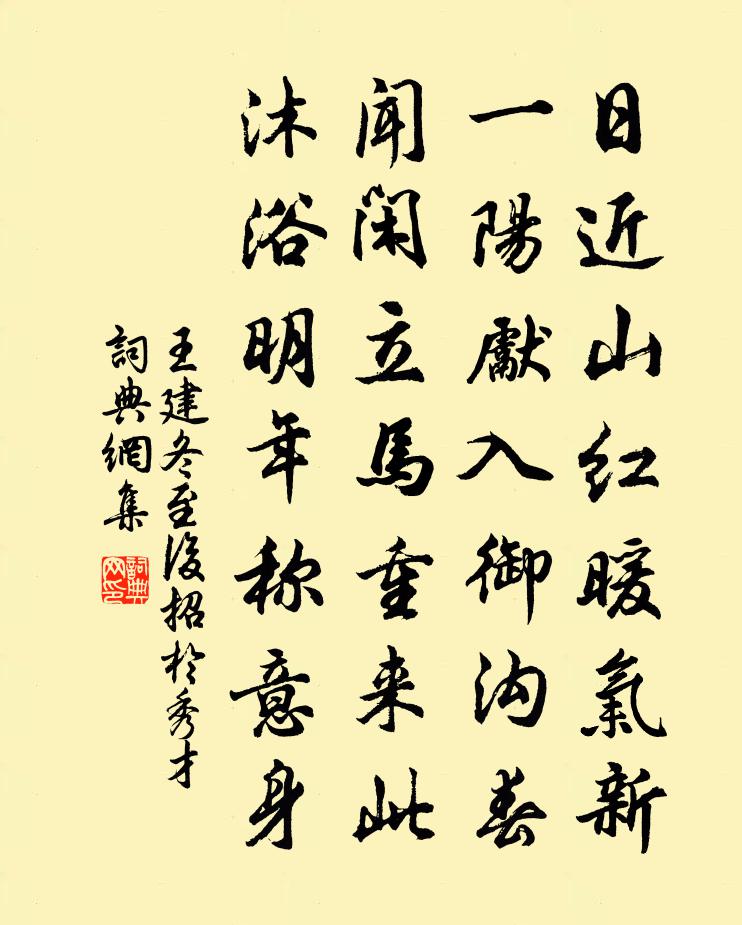 日近山红暖氣新
一陽獻入御沟春
闻闲立馬重来此
沐浴明年称意身
王建冬至後招於秀才
詞典網集
詞典网印